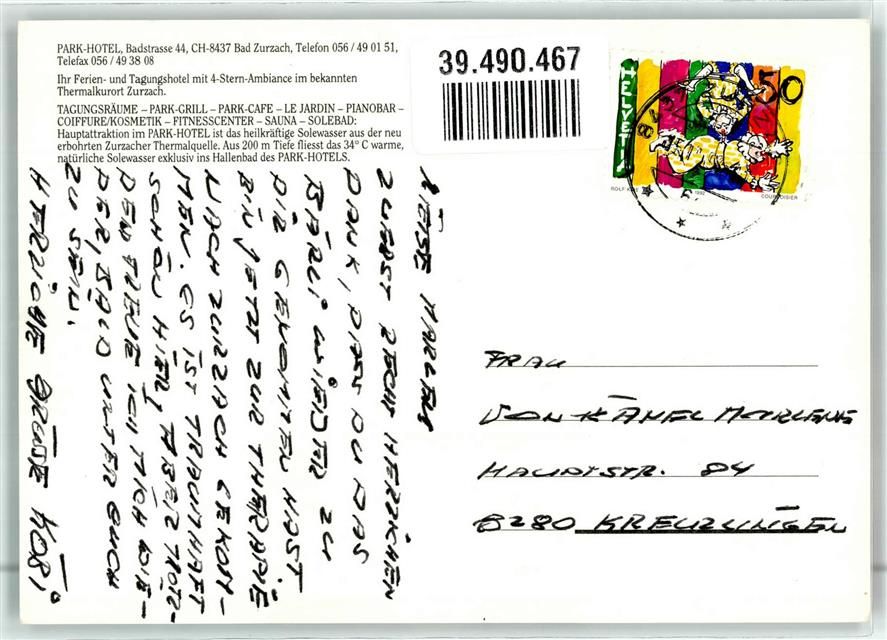 PARK-HOTEL, Badstrasse 44, CH-8437 Bad Zurzach, Telefon 056 / 49 01 51,
Telefax 056 / 49 38 08
Ihr Ferien- und Tagungshotel mit 4-Stern-Ambiance im bekannten
Thermalkurort Zurzach.
TAGUNGSRÄUME – PARK-GRILL – PARK-CAFE – LE JARDIN – PIANOBAR –
COIFFURE/KOSMETIK – FITNESSCENTER – SAUNA – SOLEBAD:
Hauptattraktion im PARK-HOTEL ist das heilkräftige Solewasser aus der neu
erbohrten Zurzacher Thermalquelle. Aus 200 m Tiefe fliesst das 34° C warme,
natürliche Solewasser exklusiv ins Hallenbad des PARK-HOTELS.
39.490.467
HELVETIA
50
1992
COURVOISIER
ZUERST RECHT HERZLICHEN
DANK, DASS DU DAS
BÄRLI WIEDER ZU
DIR GENOMMEN HAST.
BIN JETZT ZUR THERAPIE
NACH ZURZACH GEKOM-
MEN. ES IST TRAUMHAFT
SCHÖN HIER, ABER TROTZ-
DEM FREUE ICH MICH WIE-
DER, BALD UNTER EUCH
ZU SEIN.
HERZLICHE GRÜSSE KÖBI
FRAU
VON KÄNEL MARLENE
HAUPTSTR. 84
8280 KREUZLINGEN